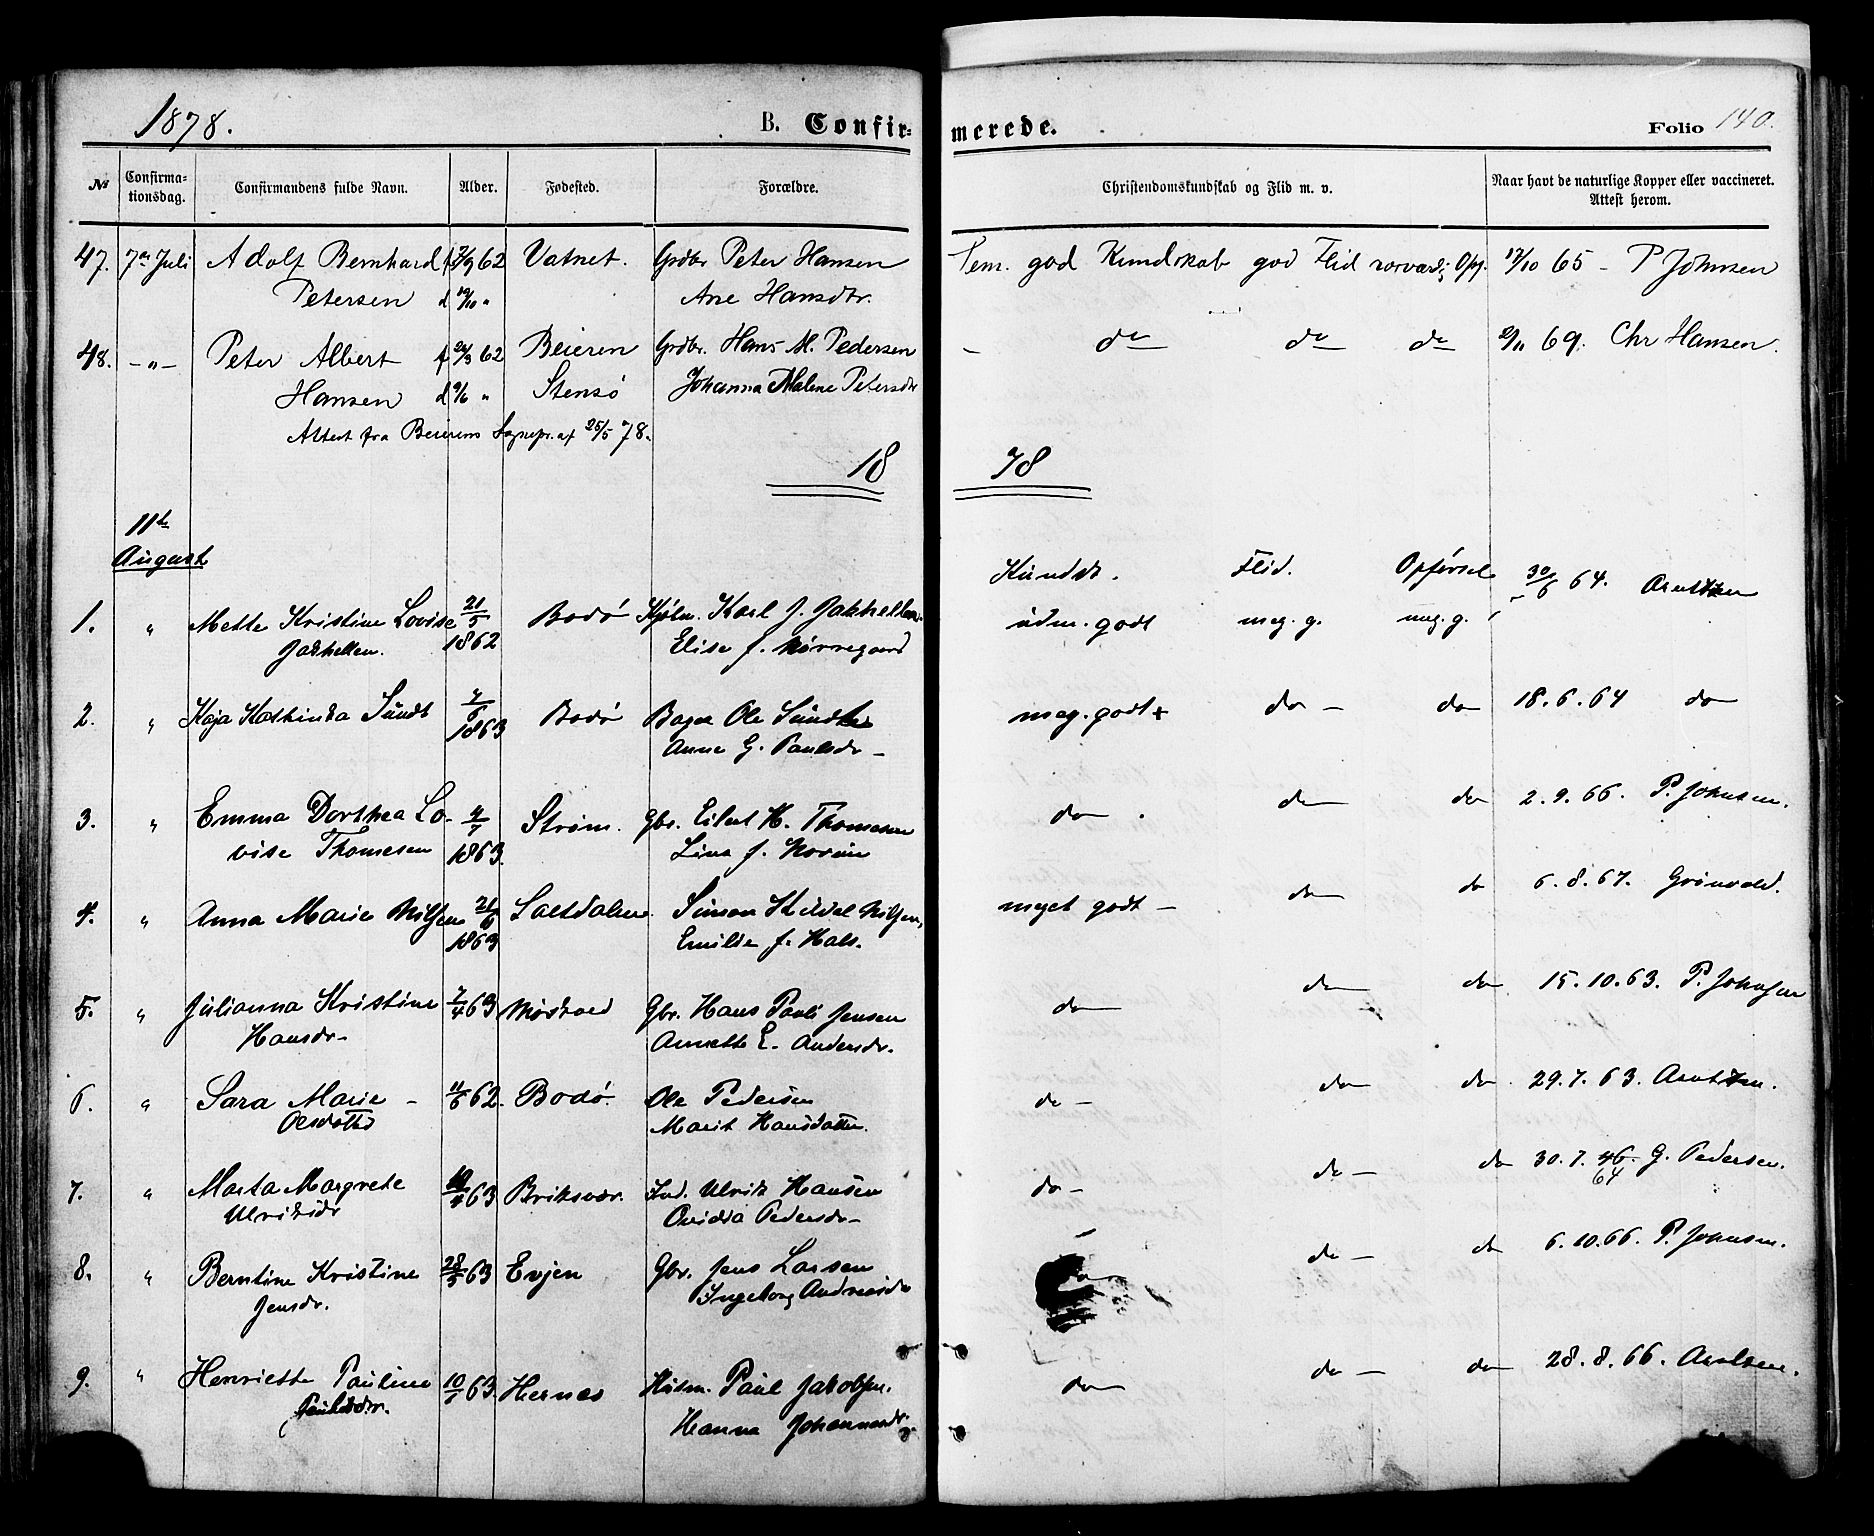 1878. B. Confirmerede. Folio 140.
No Confirmationsdag. Confirmandens fulde Navn. Alder. Fødested. Forældre. Christendomskundskab og Flid m. v. Naar havt de naturlige Kopper eller vaccineret. Attest herom.
47. 7de Juli Adolf Bernhard f 62 Vatnet. Grdbr Peter Hansen Tem. god Kundskab god Flid Opf. 17/10 65 - P Johnsen
Petersen d 19/10 " Ane Hansdtr.
48. -"- Peter Albert f 24/3 62 Beieren Grdbr. Hans M. Pedersen - do do do 2/11 69. Chr Hansen.
Hansen d 9/6 " Stensø Johanna Malene Petersdtr
Attest fra Beierens Sognepr. af 25/5 78.
18 78
11te
August Kundsk. Flid. Opførsel
1. " Mette Kristine Lovise 21/5 Bodø Kjøbm. Karl J. Jakhelln udm. godt meg. g. meg. g. 30/6 64. Arntzen
Jakhellen. 1862 Elise f. Nørregaard
2. " Kaja Kathinka Sundt 1863 Bodø Bager Ole Sundt meg. godt+ do - do 18.6.64 do
Anna G. Paulsdr -
3. " Emma Dorthea Lo- 4/7 Strøm. Gbr. Eilert H. Thomesen do do do 2.9.66. P. Johnsen.
vise Thomesen 1863. Lina f.
4. " Anna Marie Nilsen 21/6 Saltdalen. Simon Kildal Nilsen, meget godt - do do 6.8.67. Grønvold.
1863 Emilie f. Hals.
5. " Julianna Kristine 7/4 63 Gbr. Hans Pauli Jensen do do do 15.10.63. P. Johnsen
Hansdr- Annette E. Andersdr.
6. " Sara Marie - 11/6 62. Bodø. Ole Pedersen do - do do 29.7.63. Arntzen.
Olsdatter Marit Hansdatter.
7. " Marta Margrete 63 Briksvær. Ind. Ulrik Hansen do - do - do 30.7.46. G. Pedersen.
Ulriksdr Ovidia Pedersdr- 64
8. " Berntine Kristine 28/5 63 Evjen Gbr. Jens Larsen do do - do 6.10.66. P. Johnsen.
Jensdr. Ingeborg Andreasdr
9. " Henriette Pauline 10/1 63. Hernes Husm. Paul Jakobsen. do do - do 28.8.66. Arntzen.
Paulsdr. Hanna Johannesdr.